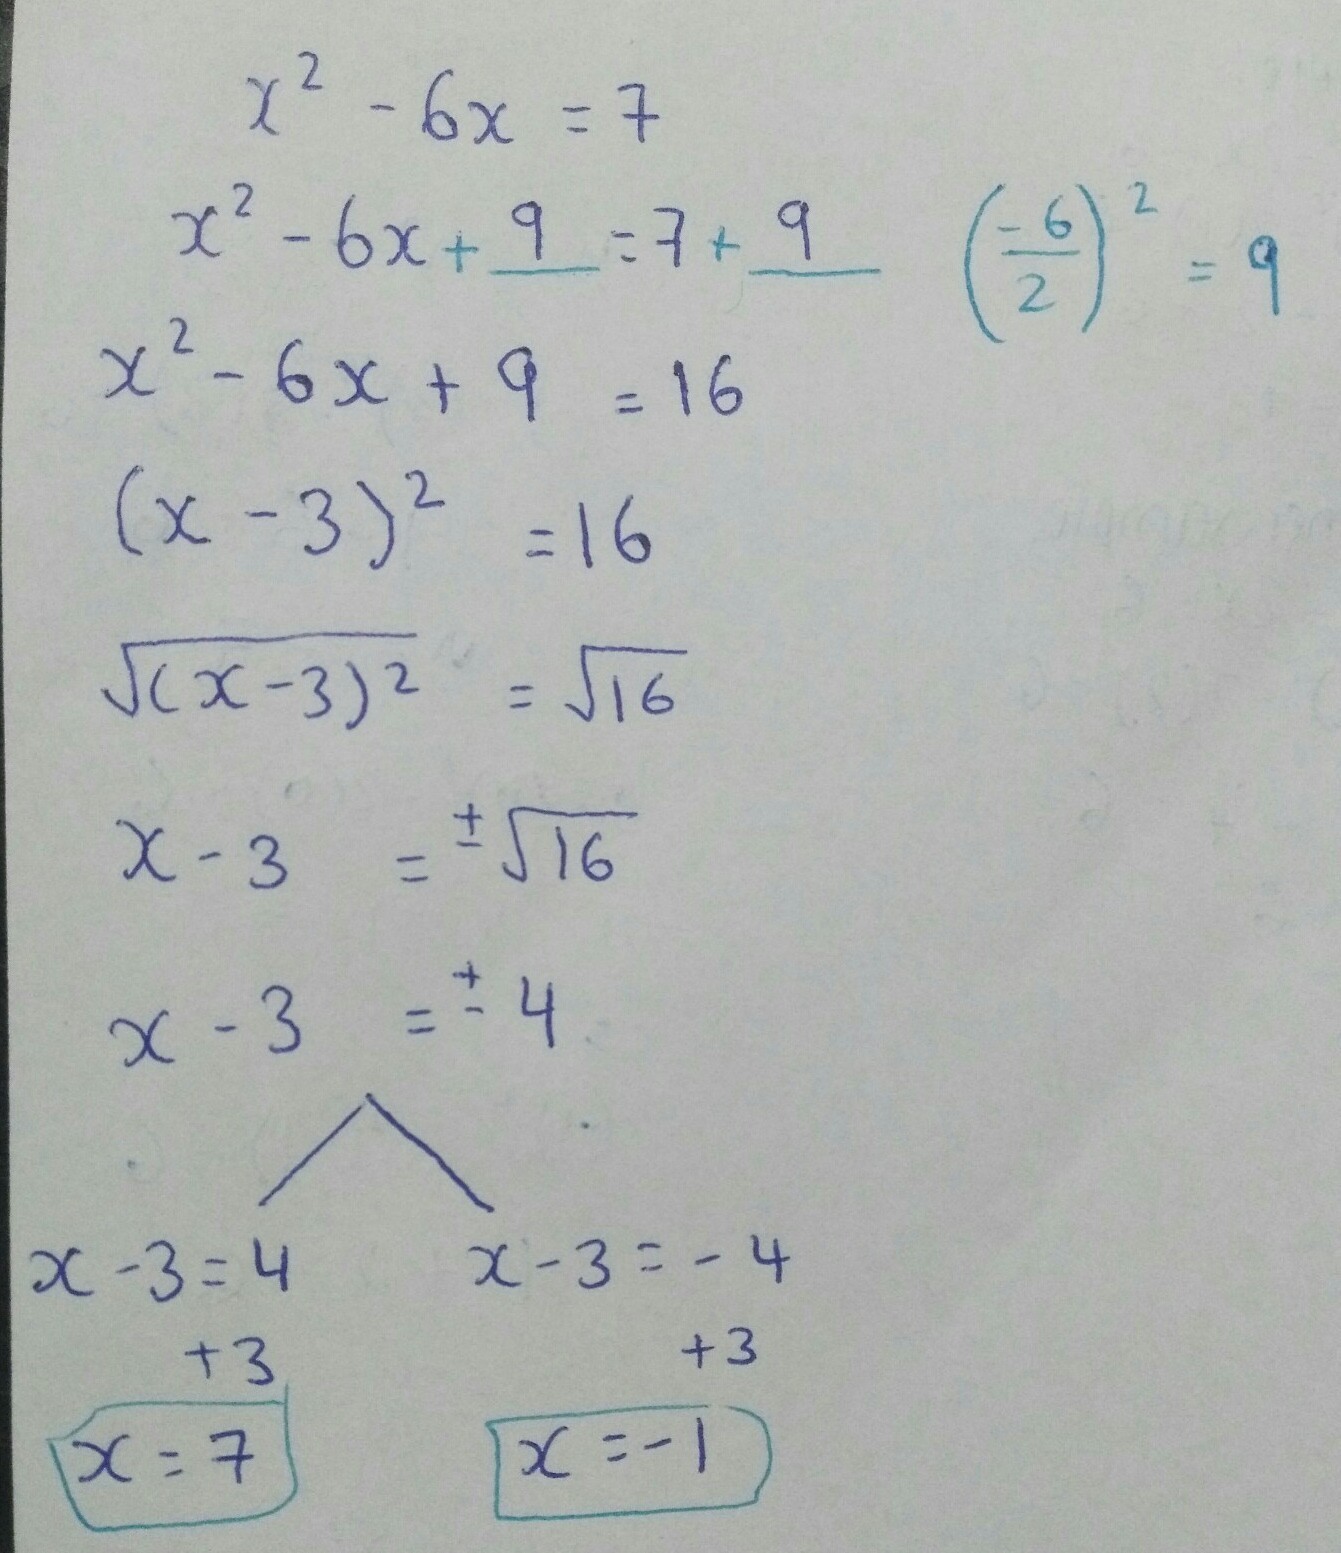 x² - 6x = 7
x² - 6x + 9 = 7 + 9 (-6/2)² = 9
x² - 6x + 9 = 16
(x - 3)² = 16
√(x-3)² = √16
x - 3 = ±√16
x - 3 = ± 4
x - 3 = 4 x - 3 = - 4
+3 +3
x = 7 x = -1